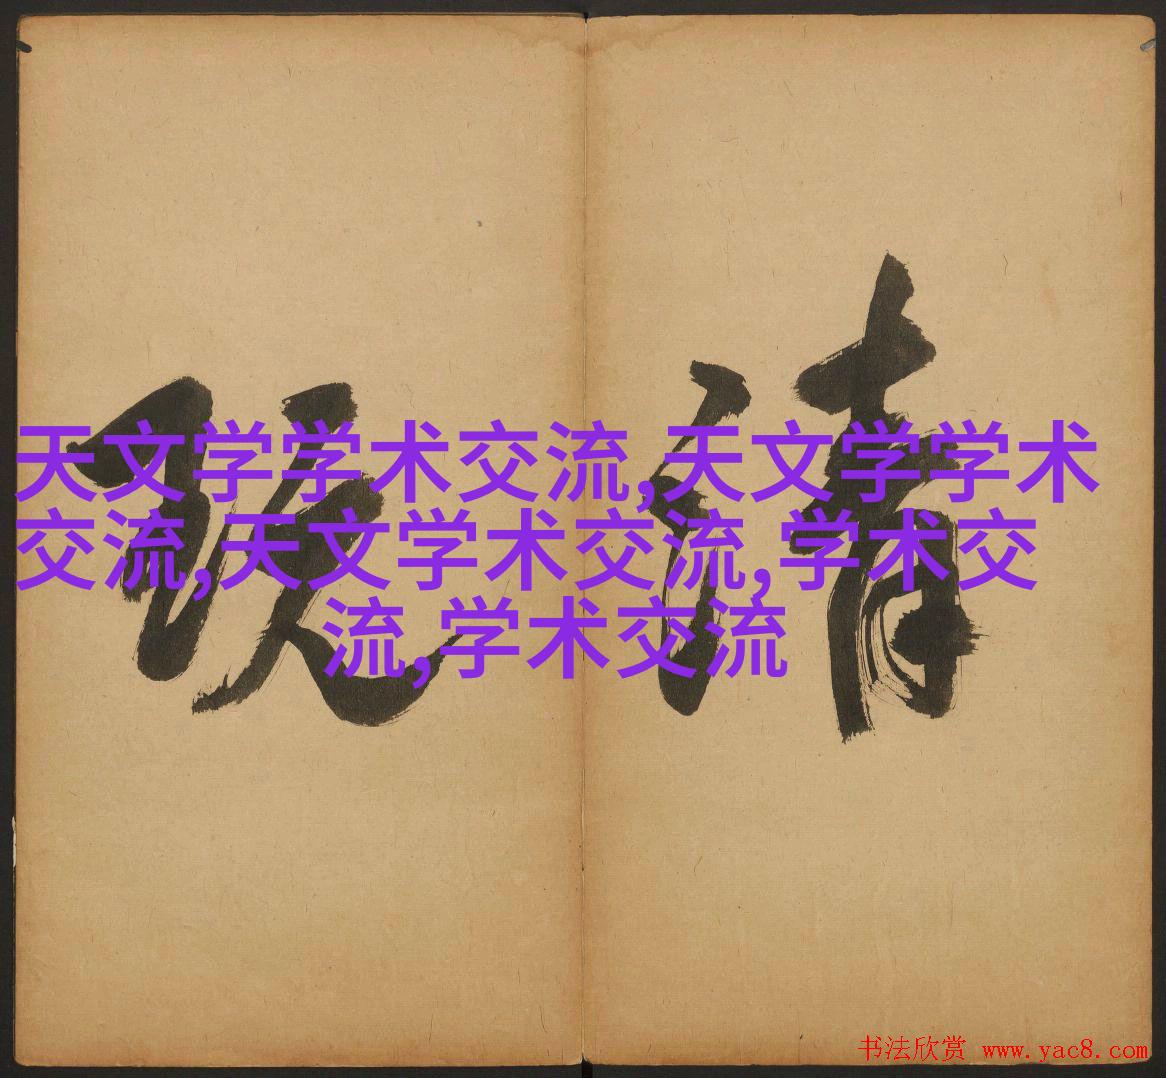 清玩
天文学学术交流,天文学学术
交流,天文学术交流,学术交
流,学术交流
书法欣赏 www.yac8.com